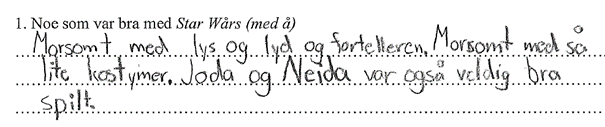 1. Noe som var bra med Star Wårs (med å)
Morsomt med lys og lyd og fortelleren. Morsomt med så
lite kostymer. Joda og Neida var også veldig bra
spilt.